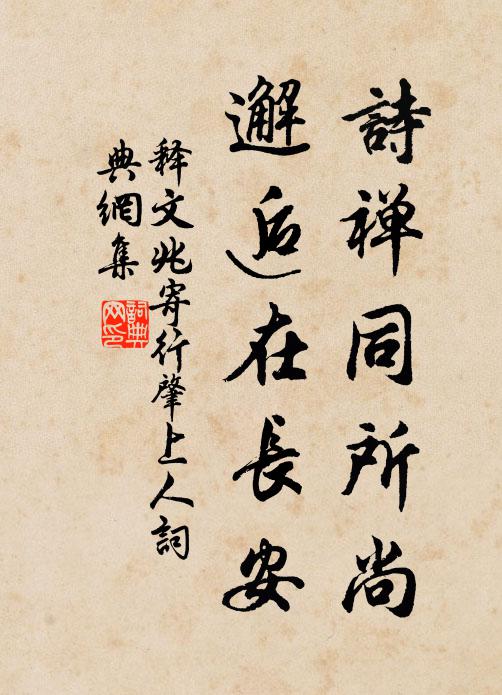 詩禅同所尚
邂逅在長安
释文兆寄行肇上人詞
典網集
詞典网印